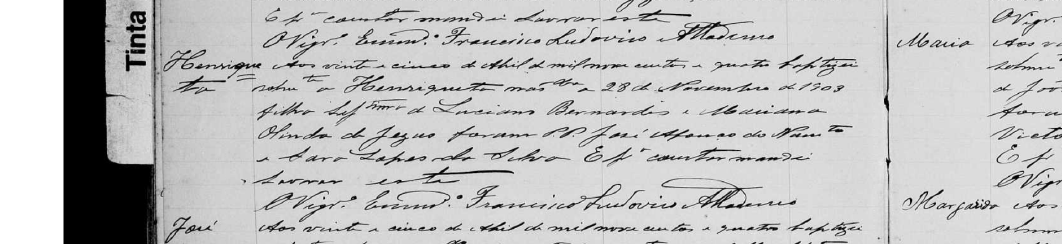 Tinta
E pª constar mandei lavrar este
O Vigrº. Encmdº. Francisco Ludovico
Henrique
ta
Aos vinte e cinco de Abril de mil nove centos e quatro baptizei
solmte a Henriqueta nascda a 28 de Novembro de 1903
filha legtima de Luciano Bernardes e Mariana
Olinda de Jezus foram PP José Affonso do
e Sara Lopes da Silva E pª constar mandei
lavrar este
O Vigrº. Encmdº. Francisco Ludovico
José
Aos vinte e cinco de Abril de mil nove centos e quatro baptizei
O Vigr
Maria
Aos v
solm
E p
O Vigr
Margarida
Aos
solm